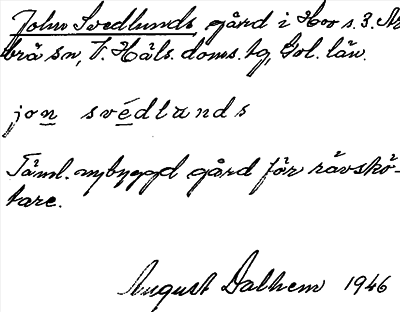 John Svedlunds gård i Hoo s. 3. Ar
brå sn, V. Häls. doms. tg, Gvl. län.
jon svédlands
Täml. nybyggd gård för rävskö-
tare.
August Dalhem 1946